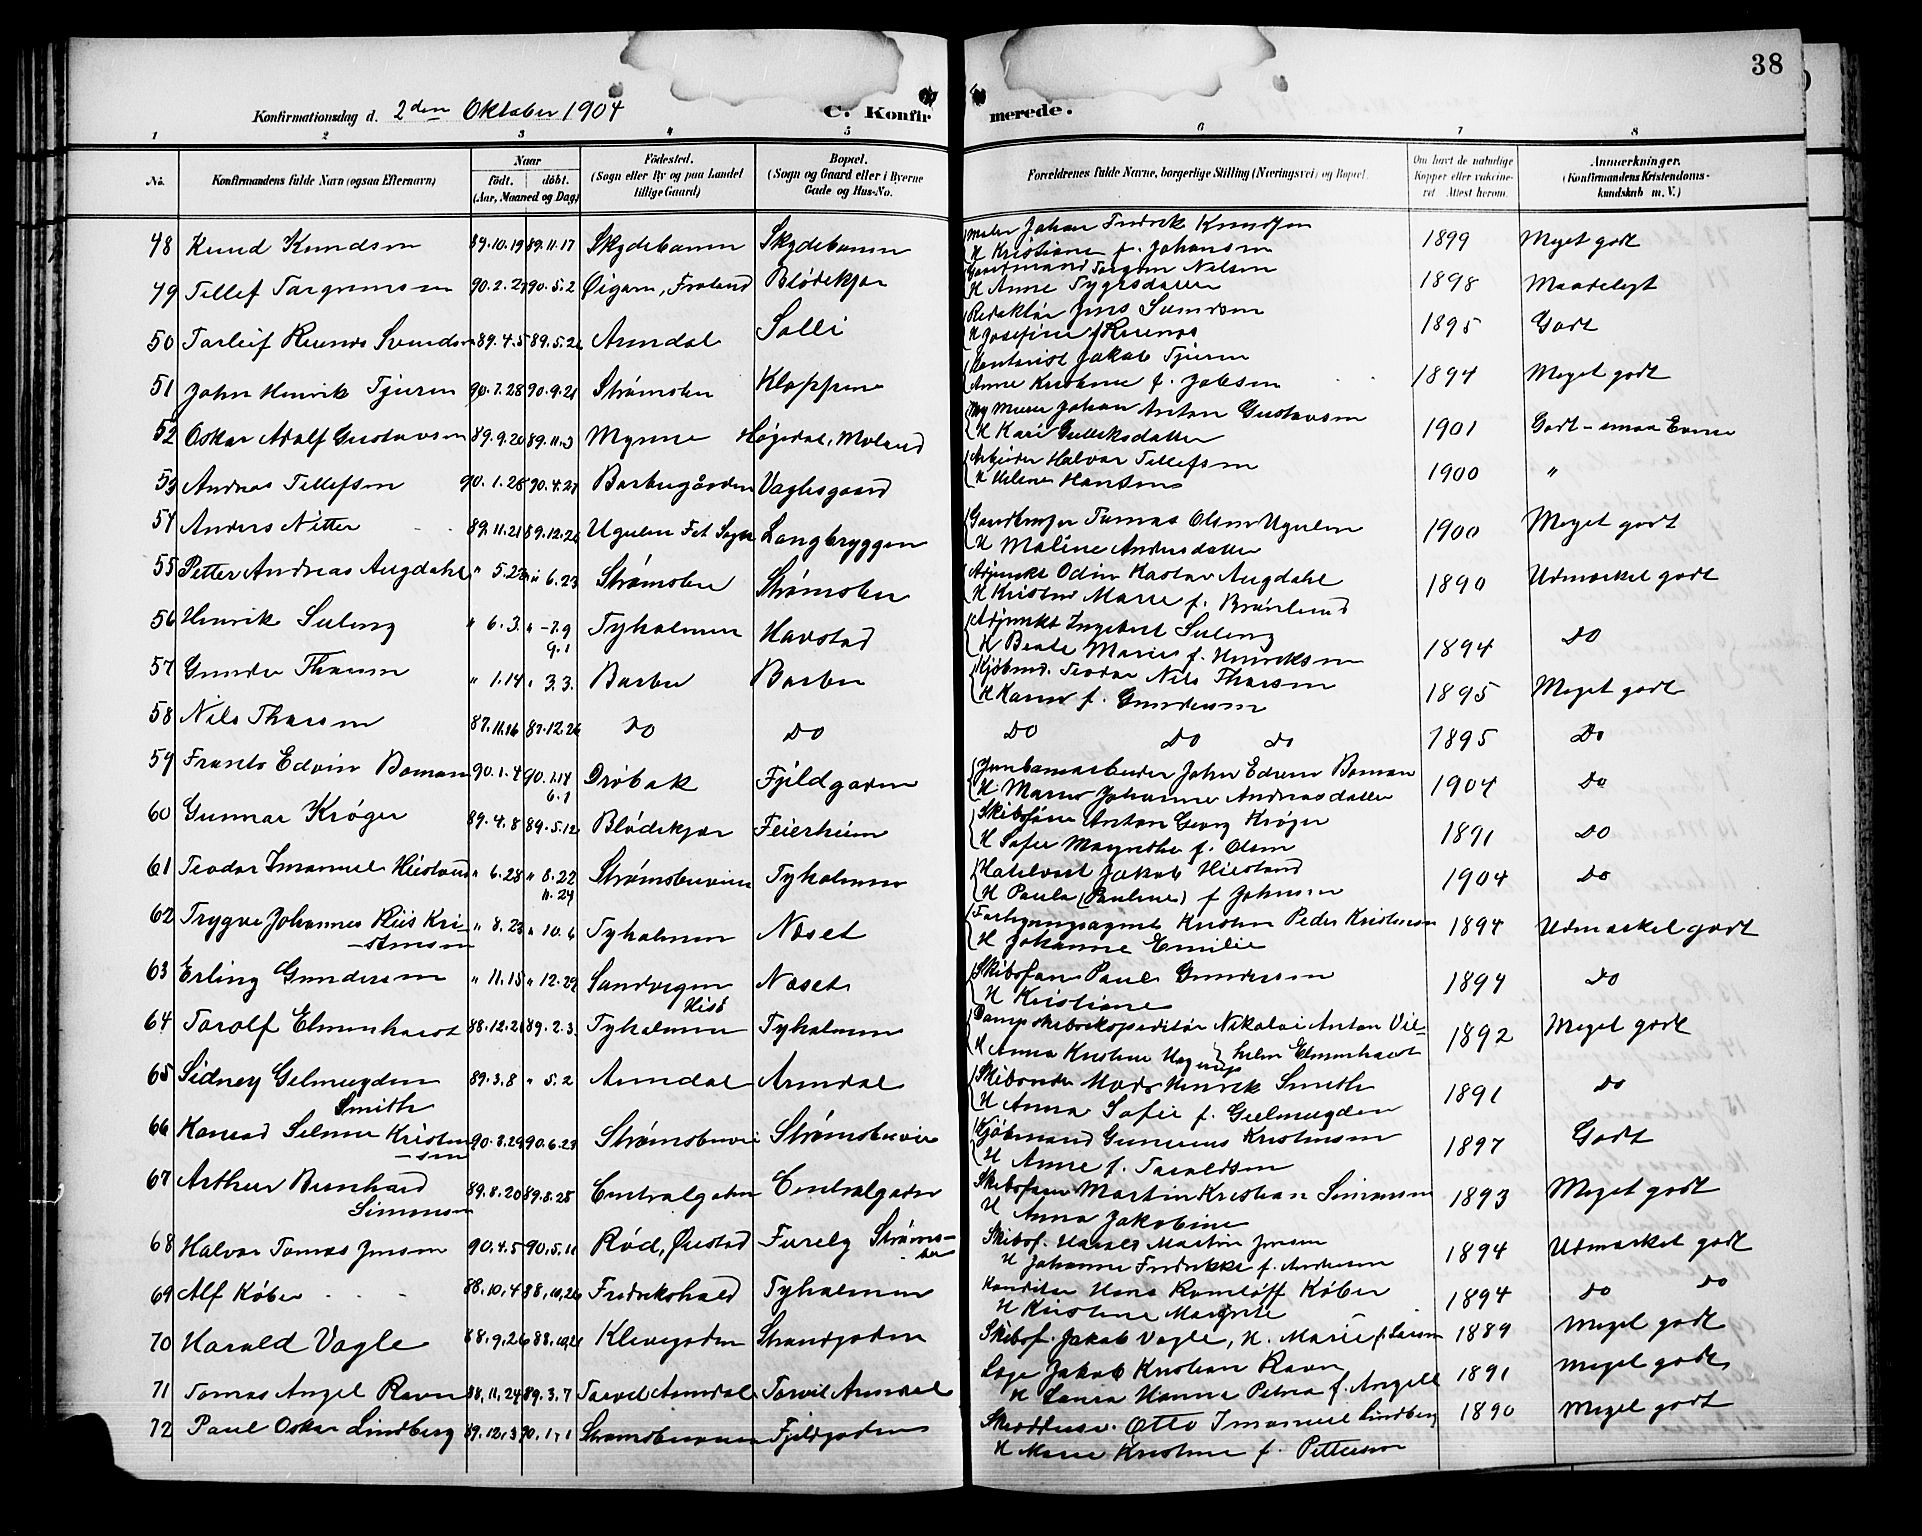 38
Konfirmationsdag d. 2den Oktober 1904 C. Konfirmerede.
1 2 3 4 5 6 7 8
No. Konfirmandens fulde Navn (ogsaa Efternavn) Naar født. døbt. (Aar, Maaned og Dag) Födested. (Sogn eller By og paa Landet tillige Gaard) Bopæl. (Sogn og Gaard eller i Byerne Gade og Hus-No. Forældrenes fulde Navne, borgerlige Stilling (Næringsvei) og Bopæl. Om havt de naturlige Kopper eller vakcineret. Attest herom. Anmærkninger. (Konfirmandens Kristendomskundskab m. V.)
48 Knud Knudsen 89.10.19 89.11.17 Skydebanen Skydebanen Maler Johan Fredrik Knudsen 1899 Meget godt
H Kristiane f. Johansen
49 Tellef Torgrimsen 90.2.27 90.5.2 Øigarn, Froland Blødekjær Torgrim Nilsen 1898 Maadelegt
H Anne Tygesdatter
50 Torleif Reenås Svendsen 89.4.5 89.5.26 Arendal Solli Redaktør Jens Svendsen 1895 Godt
H Josefine f Reenås
51 John Henrik Tjersn 90.7.28 90.9.21 Strømsbu Kloppene Kontorist Jakob 1894 Meget godt
Anne Kristine f. Jobsen
52 Oskar Adolf Gustavsen 89.9.20 89.11.3 Myrene Høgedal, Moland Murer Johan Anton Gustavsen 1901 Godt - smaa Evner
H Kari Gulleksdatter
53 Andreas Tellefsen 90.1.28 90.4.27 Barbugården Vaglesgaard Arbeider Halvor Tellefsen 1900 "
H Helene Hansen
54 Anders Nitter 89.11.21 89.12.26 Ugulen Fet Sogn Langbryggen Gaardbruger Tomas Olsen Ugulen 1900 Meget godt
H Maline Andersdatter
55 Petter Andreas Augdahl " 5.23 " 6.23 Strømsbu Strømsbu Adjunkt Odin Kastor Augdahl 1890 Udmærket godt
H Kristine Marie f. Brönlund
56 Henrik Seleng " 6.3 " -7.9 Tyholmen Havstad Adjunkt Ingebret Seleng 1894 Do
9.1 H Beate Marie f. Henriksen
57 Gunder Thorsen " 1.14 " 3.3. Barbu Barbu Kjøbmd. Teodor Nils Thorsen 1895 Meget godt
H Karen f. Gundersen
58 Nils Thorsen 87.11.16 87.12.26 Do Do Do Do Do 1895 Do
59 Frants Edvin Boman 90.1.4 90.1.14 Drøbak Fjeldgaden Jernbanearbeider John Edvin Boman 1904 Do
6.1 H Maren Johanne Andreasdatter
60 Gunnar Krøger 89.4.8 89.5.12 Blødekjær Feierheien Skibsfører Anton Georg Krøger 1891 Do
H Sofie Magrethe f. Olsen
61 Teodor Imanuel Hiestand " 6.28 " 8.22 Strømsbuveien Tyholmen Hotelvert Jakob Hiestand 1904 Do
11.24 H Paula (Pauline) f Johnsen
62 Trygve Johannes Riis Kri- " 8.23 " 10.6 Tyholmen Næset Kristen Peder Kristensen 1894 Udmærket godt
-stensen H Johanne Emilie
63 Erling Gundersen " 11.15 " 12.29 Sandvigen Næset Skibsfører Paul Gundersen 1894 Do
Hisö H Kristiane
64 Torolf Elmenhorst 88.12.21 89.2.3 Tyholmen Tyholmen Dampskibsekspeditør Nikolai Anton Vil- 1892 Meget godt
H Anna Kristine Hagerup helm Elmenhorst
65 Sidney Gelmuyden 89.3.8 " 5.2 Arendal Arendal Skibsreder Mads Henrik Smith 1891 Do
Smith H Anna Sofie f. Gelmuyden
66 Konrad Selmer Kristen- 90.3.29 90.6.29 Strømsbuvei Strømsbuvei Kjøbmand Gunerius Kristensen 1897 Godt
-sen H Anne f. Taraldsen
67 Arthur Bernhard 89.8.20 89.8.28 Centralgaden Centralgaden Skibsfører Martin Kristian Simonsen 1893 Meget godt
Simonsen H Anna Jakobine
68 Halvor Tomas Jensen 90.4.5 90.5.11 Rød, Øiestad Furely Strøms- Skibsf. Harald Martin Jensen 1894 Udmærket godt
bu H Johanne Fredrikke f. Andersen
69 Alf Køber 88.10.4 88.10.26 Fredrikshald Tyholmen Konditor Hans Rømløff Køber 1894 Do Do
H Kristine Margrete
70 Harald Vagle 88.9.26 88.10.21 Klevegaden Strandgaden Skibsf. Jakob Vagle, H. Marie f. Larsen 1889 Meget godt
71 Tomas Angel Ravn 88.11.24 89.3.7 Torvet Arendal Torvet Arendal Læge Jakob Kristian Ravn 1891 Meget godt
H Laura Hanna Petrea f. Angell
72 Paul Oskar Lindberg 89.12.3 90.1.1 Strømsbuveien Fjeldgaden Skrædder. Otto Imanuel Lindberg 1890 Meget godt
H Marie Kristine f. Pettersen